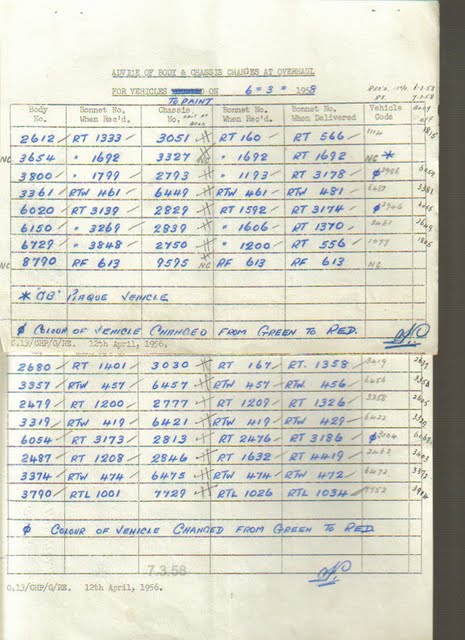 ADVICE OF BODY & CHASSIS CHANGES AT OVERHAUL
FOR VEHICLES ON 6 = 3 = 1958
TO PAINT
Body No. Bonnet No. When Rec'd. Chassis No. Bonnet No. Bonnet No. When Delivered Vehicle Code
2612 RT 1333 3051 RT 160 RT 566
NC 3654 " 1692 3327 NC " 1692 RT 1692 NC *
3800 " 1799 2793 " 1193 RT 3178 ø
3361 RTW 461 6449 RTW 461 RTW 481
6020 RT 3139 2829 RT 1592 RT 3174 ø 2946
6150 " 3269 2839 " 1606 RT 1370
6729 " 3848 2750 " 1200 RT 556
NC 8790 RF 613 9595 NC RF 613 RF 613 NC
PLAQUE VEHICLE
ø COLOUR OF VEHICLE CHANGED FROM GREEN TO RED.
G.13/CHP/G/RE. 12th April, 1956.
2680 RT 1401 3030 RT 167 RT. 1358 3419
3357 RTW 457 6457 RTW 457 RTW 456 6456
2479 RT 1200 2777 RT 1209 RT 1326 3358
3319 RTW 419 6421 RTW 419 RTW 429 6422
6054 RT 3173 2813 RT 2476 RT 3186 ø
2487 RT 1208 2846 RT 1632 RT 4419
3374 RTW 474 6475 RTW 474 RTW 472 6472
3790 RTL 1001 7729 RTL 1026 RTL 1034 7752
ø COLOUR OF VEHICLE CHANGED FROM GREEN TO RED
7.3.58
G.13/CHP/G/RE. 12th April, 1956.